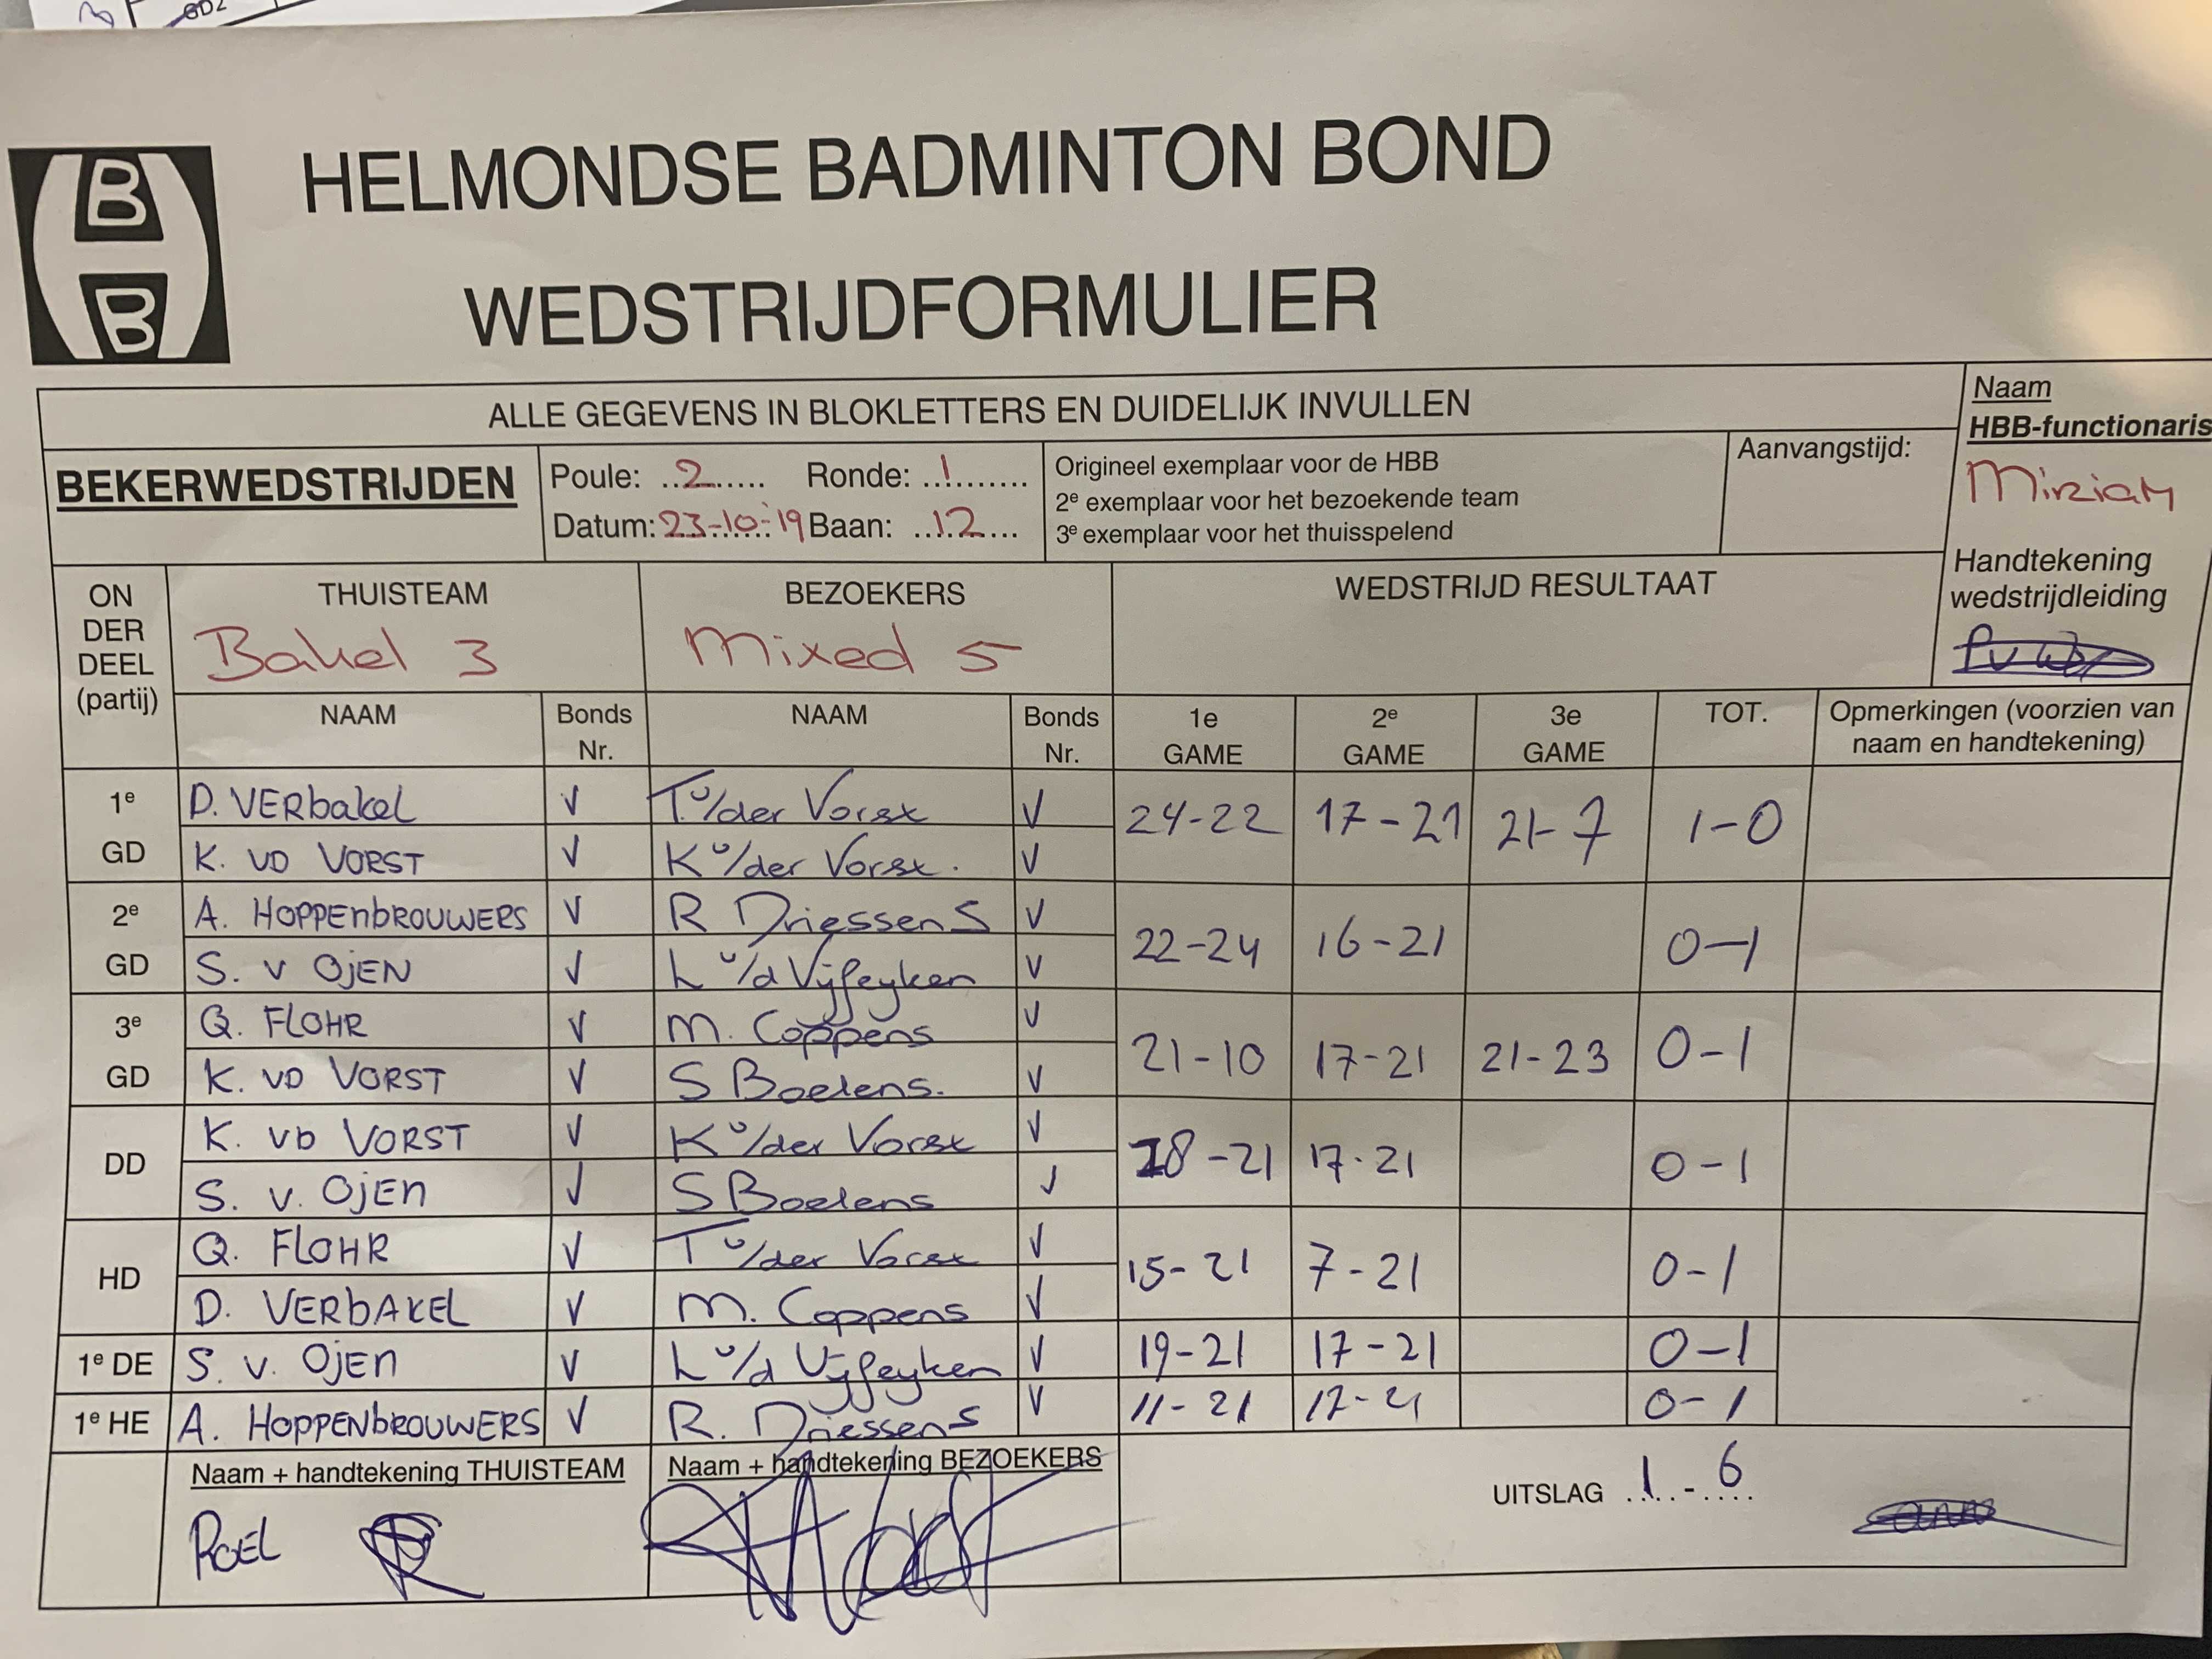 GD2
B
B
HELMONDSE BADMINTON BOND
WEDSTRIJDFORMULIER
ALLE GEGEVENS IN BLOKLETTERS EN DUIDELIJK INVULLEN
Naam
HBB-functionaris
Miriam
BEKERWEDSTRIJDEN
Poule: ..2..... Ronde: ..1........
Datum: 23-10-'19 Baan: ....12....
Origineel exemplaar voor de HBB
2e exemplaar voor het bezoekende team
3e exemplaar voor het thuisspelend
Aanvangstijd:
Handtekening
wedstrijdleiding
ON
DER
DEEL
(partij)
THUISTEAM
Bakel 3
BEZOEKERS
Mixed 5
WEDSTRIJD RESULTAAT
NAAM Bonds Nr. NAAM Bonds Nr. 1e GAME 2e GAME 3e GAME TOT. Opmerkingen (voorzien van naam en handtekening)
1e GD
D. VERbakel V T. v/der Vorst V 24-22 17-21 21-7 1-0
K. VD VORST V K v/der Vorst. V
2e GD
A. HOPPENbROUWERS V R Driessens V 22-24 16-21 0-1
S. v OjEN V L v/d Vijfeyken V
3e GD
Q. FLOHR V M. Coppens V 21-10 17-21 21-23 0-1
K. VD VORST V S Boelens. V
DD
K. VD VORST V K v/der Vorst V 18-21 17-21 0-1
S. v. OjEN V S Boelens V
HD
Q. FLOHR V T v/der Vorst V 15-21 7-21 0-1
D. VERbAKEL V M. Coppens V
1e DE S. v. OjEN V L v/d Vijfeyken V 19-21 17-21 0-1
1e HE A. HOPPENbROUWERS V R. Driessens V 11-21 17-21 0-1
Naam + handtekening THUISTEAM
ROEL
Naam + handtekening BEZOEKERS
UITSLAG 1 - 6